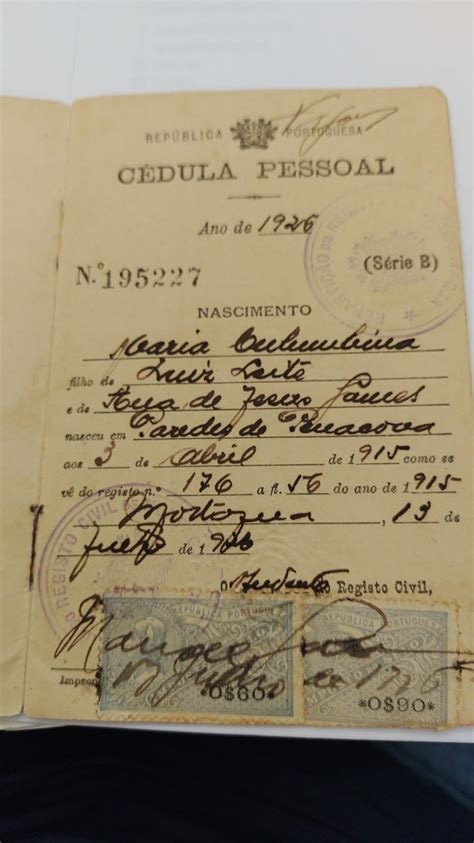 REPÚBLICA PORTUGUESA
CÉDULA PESSOAL
Ano de 1926
N.º 195227 (Série B)
NASCIMENTO
Maria Culumbina
filho de Luiz Leite
e de Ana de Jesus Gomes
nasceu em Paredes de Penacova
aos 3 de Abril de 1915 como se
vê do registo n.º 176 a fl. 56 do ano de 1915
Mortagua, 13 de
Julho de 1926
O Ajudante do Registo Civil,
REPÚBLICA PORTUGUESA REPÚBLICA PORTUGUESA
Manoel
17 Julho de 1926
Impren
0$60 0$90